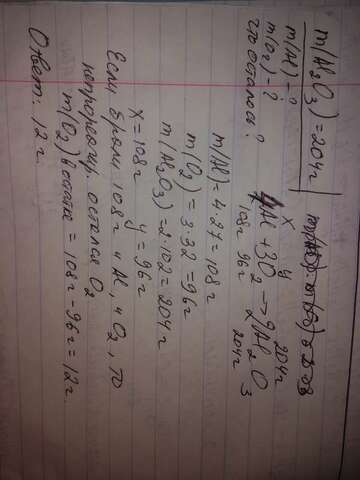 m(Al₂O₃)=204г
m(Al)-?
m(O₂)-?
что осталось?
x y 204г
4Al+3O₂→2Al₂O₃
108г 96г 204г
m(Al)=4·27=108г
m(O₂)=3·32=96г
m(Al₂O₃)=2·102=204г
x=108г y=96г
Если брали 108г и Al, и O₂, то
непрореагир. остался O₂
m(O₂) остатка = 108г-96г=12г.
Ответ: 12г.